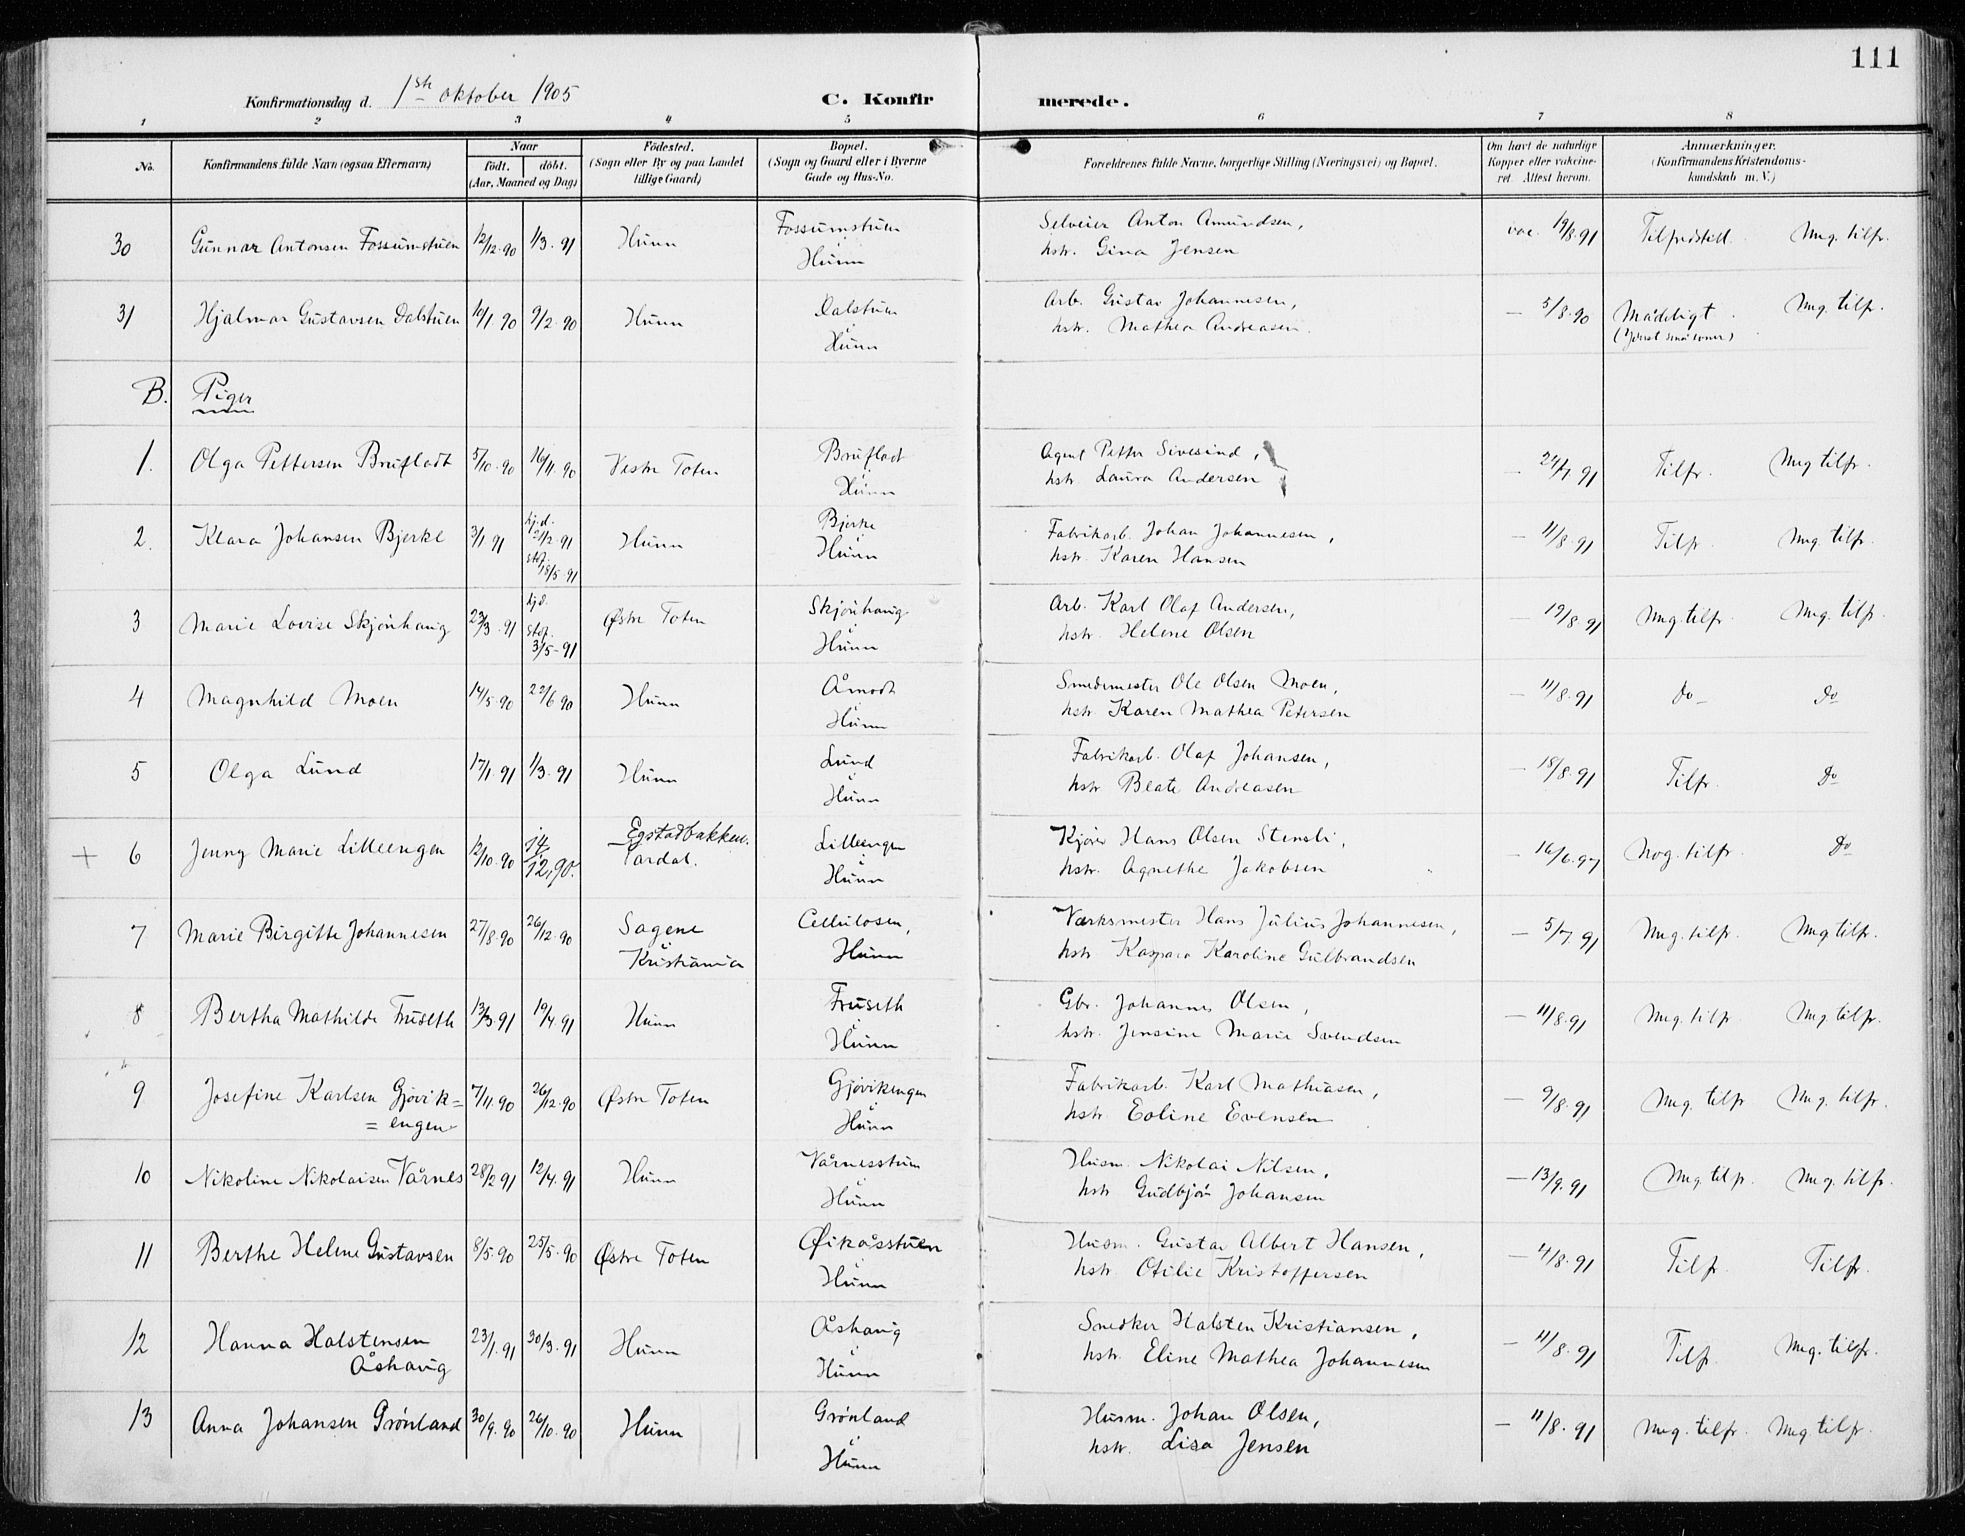 111
Konfirmationsdag d. 1ste oktober 1905
C. Konfirmerede.
1 2 3 4 5 6 7 8
No.
Konfirmandens fulde Navn (ogsaa Efternavn)
Naar
födt. döbt.
(Aar, Maaned og Dag)
Födested.
(Sogn eller By og paa Landet
tillige Gaard)
Bopæl.
(Sogn og Gaard eller i Byerne
Gade og Hus-No.
Forældrenes fulde Navne, borgerlige Stilling (Næringsvei) og Bopæl.
Om havt de naturlige
Kopper eller vakcine-
ret. Attest herom.
Anmærkninger.
(Konfirmandens Kristendoms-
kundskab m. V.)
30 Gunnar Antonsen Fossumstuen 12/12.90 1/3.91 Hunn Fossumstuen Selveier Anton Amundsen, vac. 19/8.91 Tilfredstill. Meg. tilfr.
Hunn hstr. Gina Jensen
31 Hjalmar Gustavsen Dalstuen 10/1.90 9/2.90 Hunn Dalstuen Arb. Gustav Johannesen, — 5/8.90 Mådeligt. Meg. tilfr.
i Hunn hstr. Mathea Andreasen.
B. Piger
1. Olga Pettersen Brufladt 5/10.90 16/11.90 Vestre Toten Brufladt Agent Petter Sivesind, — 24/7.91 Tilfr. Meg tilfr.
i Hunn hstr. Laura Andersen
2. Klara Johansen Bjerke 3/1 91 hj.d. 21/2.91 Hunn Bjerke Fabrikarb. Johan Johannesen, — 11/8.91 Tilfr. Meg. tilfr.
stdf. 18/5.91 i Hunn hstr. Karen Hansen
3 Marie Lovise Skjönhaug 23/3.91 hjd. Østre Toten Skjönhaug Arb. Karl Olaf Andersen, — 19/8.91 Meg. tilfr. Meg. tilfr.
stdf. 3/5-91 i Hunn hstr. Helene Olsen
4 Magnhild Moen 14/5.90 22/6 90 Hunn Åmodt Smedemester Ole Olsen Moen, — 11/8.91 Do Do
i Hunn hstr. Karen Mathea Petersen
5 Olga Lund 17/1 91 1/3.91 Hunn Lund Fabrikarb. Olaf Johansen, — 18/8.91 Tilfr. Do
i Hunn hstr Beate Andreasen
+ 6 Jenny Marie Lilleengen 12/10.90 14/12.90. Egstadbakken. Lilleengen Kjører Hans Olsen Stensli, — 16/6.97 Nog. tilfr. Do
Vardal. i Hunn hstr. Agnethe Jakobsen
7 Marie Birgitte Johannesen 27/8.90 26/12.90 Sagene Cellulosen, Værksmester Hans Julius Johannesen, — 5/7.91 Meg. tilfr. Meg tilfr.
i Kristiania Hunn hstr Kaspara Karoline Gulbrandsen
8 Bertha Mathilde Fruseth 13/3 91 19/4.91 Hunn Fruseth Gbr. Johannes Olsen, — 11/8.91 Meg. tilfr. Meg. tilfr.
i Hunn hstr. Jensine Marie Svendsen
9 Josefine Karlsen Gjövik= 7/11.90 26/12.90 Østre Toten Gjövikengen Fabrikarb. Karl Mathiasen, — 9/8.91 Meg. tilfr Meg. tilfr.
= engen i Hunn hstr. Eoline Evensen
10 Nikoline Nikolaisen Vårnes 28/2 91 12/4.91 Hunn Vårnesstuen Husm. Nikolai Nilsen, — 13/9.91 Meg. tilfr. Meg. tilfr.
i Hunn hstr Gudbjör Johansen
11 Berthe Helene Gustavsen 8/5.90 25/5.90 Østre Toten Øikåsstuen Husm. Gustav Albert Hansen, — 4/8.91 Tilfr. Tilfr.
i Hunn hstr. Otilie Kristoffersen
12 Hanna Halstensen 23/1.91 30/3.91 Hunn Åshaug Snedker Halsten Kristiansen, — 11/8.91 Tilfr. Meg. tilfr.
Åshaug i Hunn hstr. Eline Mathea Johannesen
13 Anna Johansen Grönland 30/9.90 26/10.90 Hunn Grönland Husm. Johan Olsen, — 11/8.91 Meg. tilfr. Meg tilfr.
i Hunn hstr. Lisa Jensen